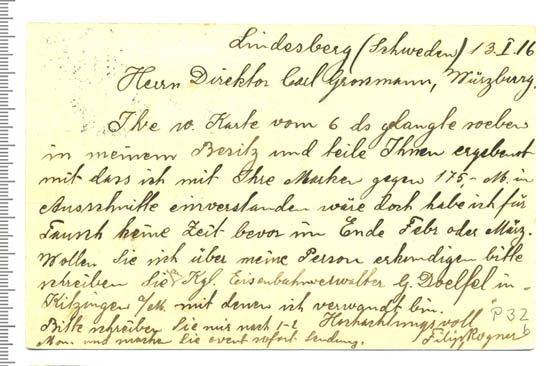 Lindesberg (Schweden) 13.I.16
Herrn Direktor Carl Grossmann, Würzburg.
Ihre w. Karte vom 6 ds gelangte soeben
in meinem Besitz und teile Ihnen ergebenst
mit dass ich mit Ihre Marken gegen 175.- M. in
Ausschnitte einverstanden wäre doch habe ich für
Tausch keine Zeit bevor im Ende Febr oder März.
Wollen Sie sich über meine Person erkundigen bitte
schreiben Sie Kgl. Eisenbahnverwalter G. Doelfel in
Kitzingen a/M. mit denen ich verwandt bin.
Bitte schreiben Sie nur nach 1-2 Hochachtungsvoll
Mon. und machen Sie event sofort Sendung. Filip Rogner
P32
b